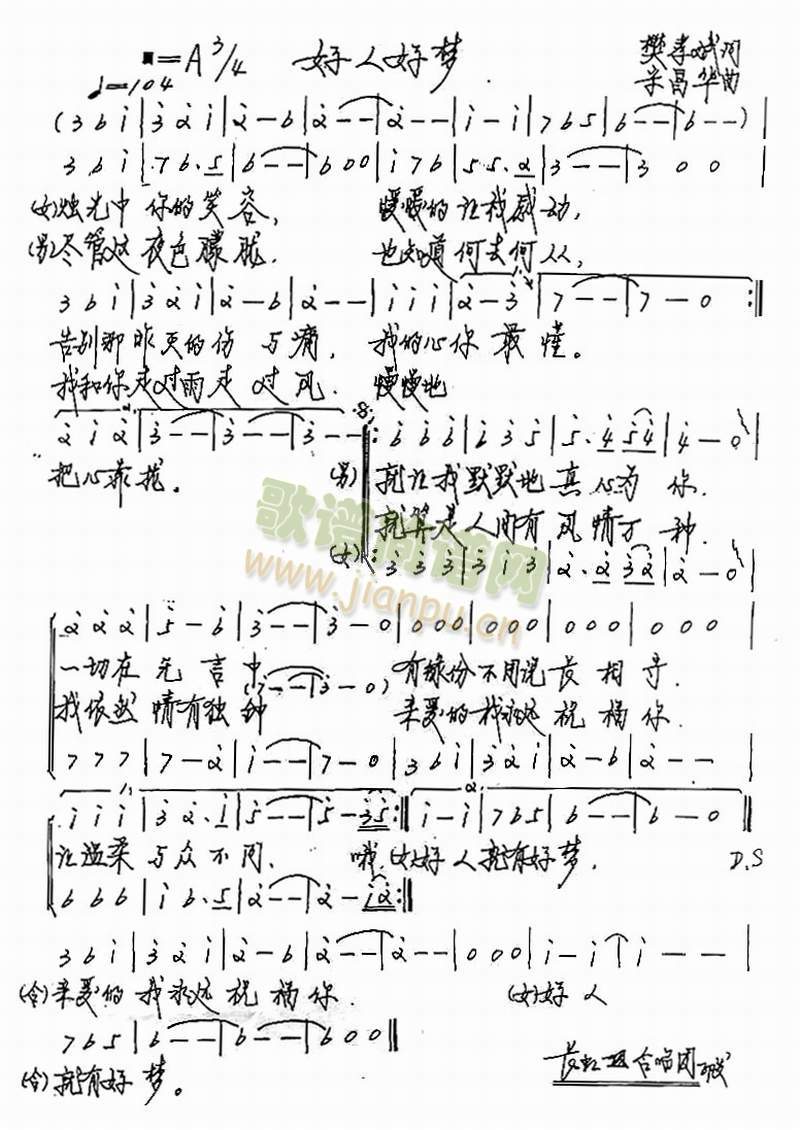 1=A 3/4 好人好梦 樊孝斌词
♩=104 宋昌华曲
(3 6 i | 3 2 i | 2 - 6 | 2 - - | 2 - - | i - i | 7 6 5 | 6 - - | 6 - -) |
3 6 i | 7 6. 5 | 6 - - | 6 0 0 | i 7 6 | 5 5. 2 | 3 - - | 3 0 0 |
(女)烛光中 你的笑容, 暖暖的让我感动,
(男)尽管这夜色朦胧. 也知道何去何从,
3 6 i | 3 2 i | 2 - 6 | 2 - - | i i i | 2 - 3 | 7 - - | 7 - 0 :||
告别那昨天的伤与痛, 我的心你最懂。
我和你走过雨走过风. 慢慢地
2 i 2 | 3 - - | 3 - - | 3 - - ||: 6 6 6 | 6 3 5 | 5. 4 5 4 | 4 - 0 |
把心靠拢。 (男) 就让我默默地真心为你.
就算是人间有风情万种.
(女) : 3 3 3 | 3 i 3 | 2. 2 3 2 | 2 - 0 |
歌谱简谱网
www.jianpu.cn
2 2 2 | 5 - 6 | 3 - - | 3 - 0 | 0 0 0 | 0 0 0 | 0 0 0 | 0 0 0
一切在无言中 有缘份不用说长相守.
(7 - - | 3 - 0)
我依然情有独钟 亲爱的我永远祝福你.
7 7 7 | 7 - 2 | i - - | 7 - 0 | 3 6 i | 3 2 i | 2 - 6 | 2 - - |
i i i | 3 2. i | 5 - - | 5 - 3 5 :|| i - i | 7 6 5 | 6 - - | 6 - 0 ||
让温柔与众不同. 哦.(女)好人就有好梦. D.S
6 6 6 | i 6. 5 | 2 - - | 2 - i 2 :||
3 6 i | 3 2 i | 2 - 6 | 2 - - | 2 - - | 0 0 0 | i - i | i - - |
(合)亲爱的我永远祝福你. (女)好人
7 6 5 | 6 - - | 6 - - | 6 0 0 ||
(合)就有好梦。 合唱团